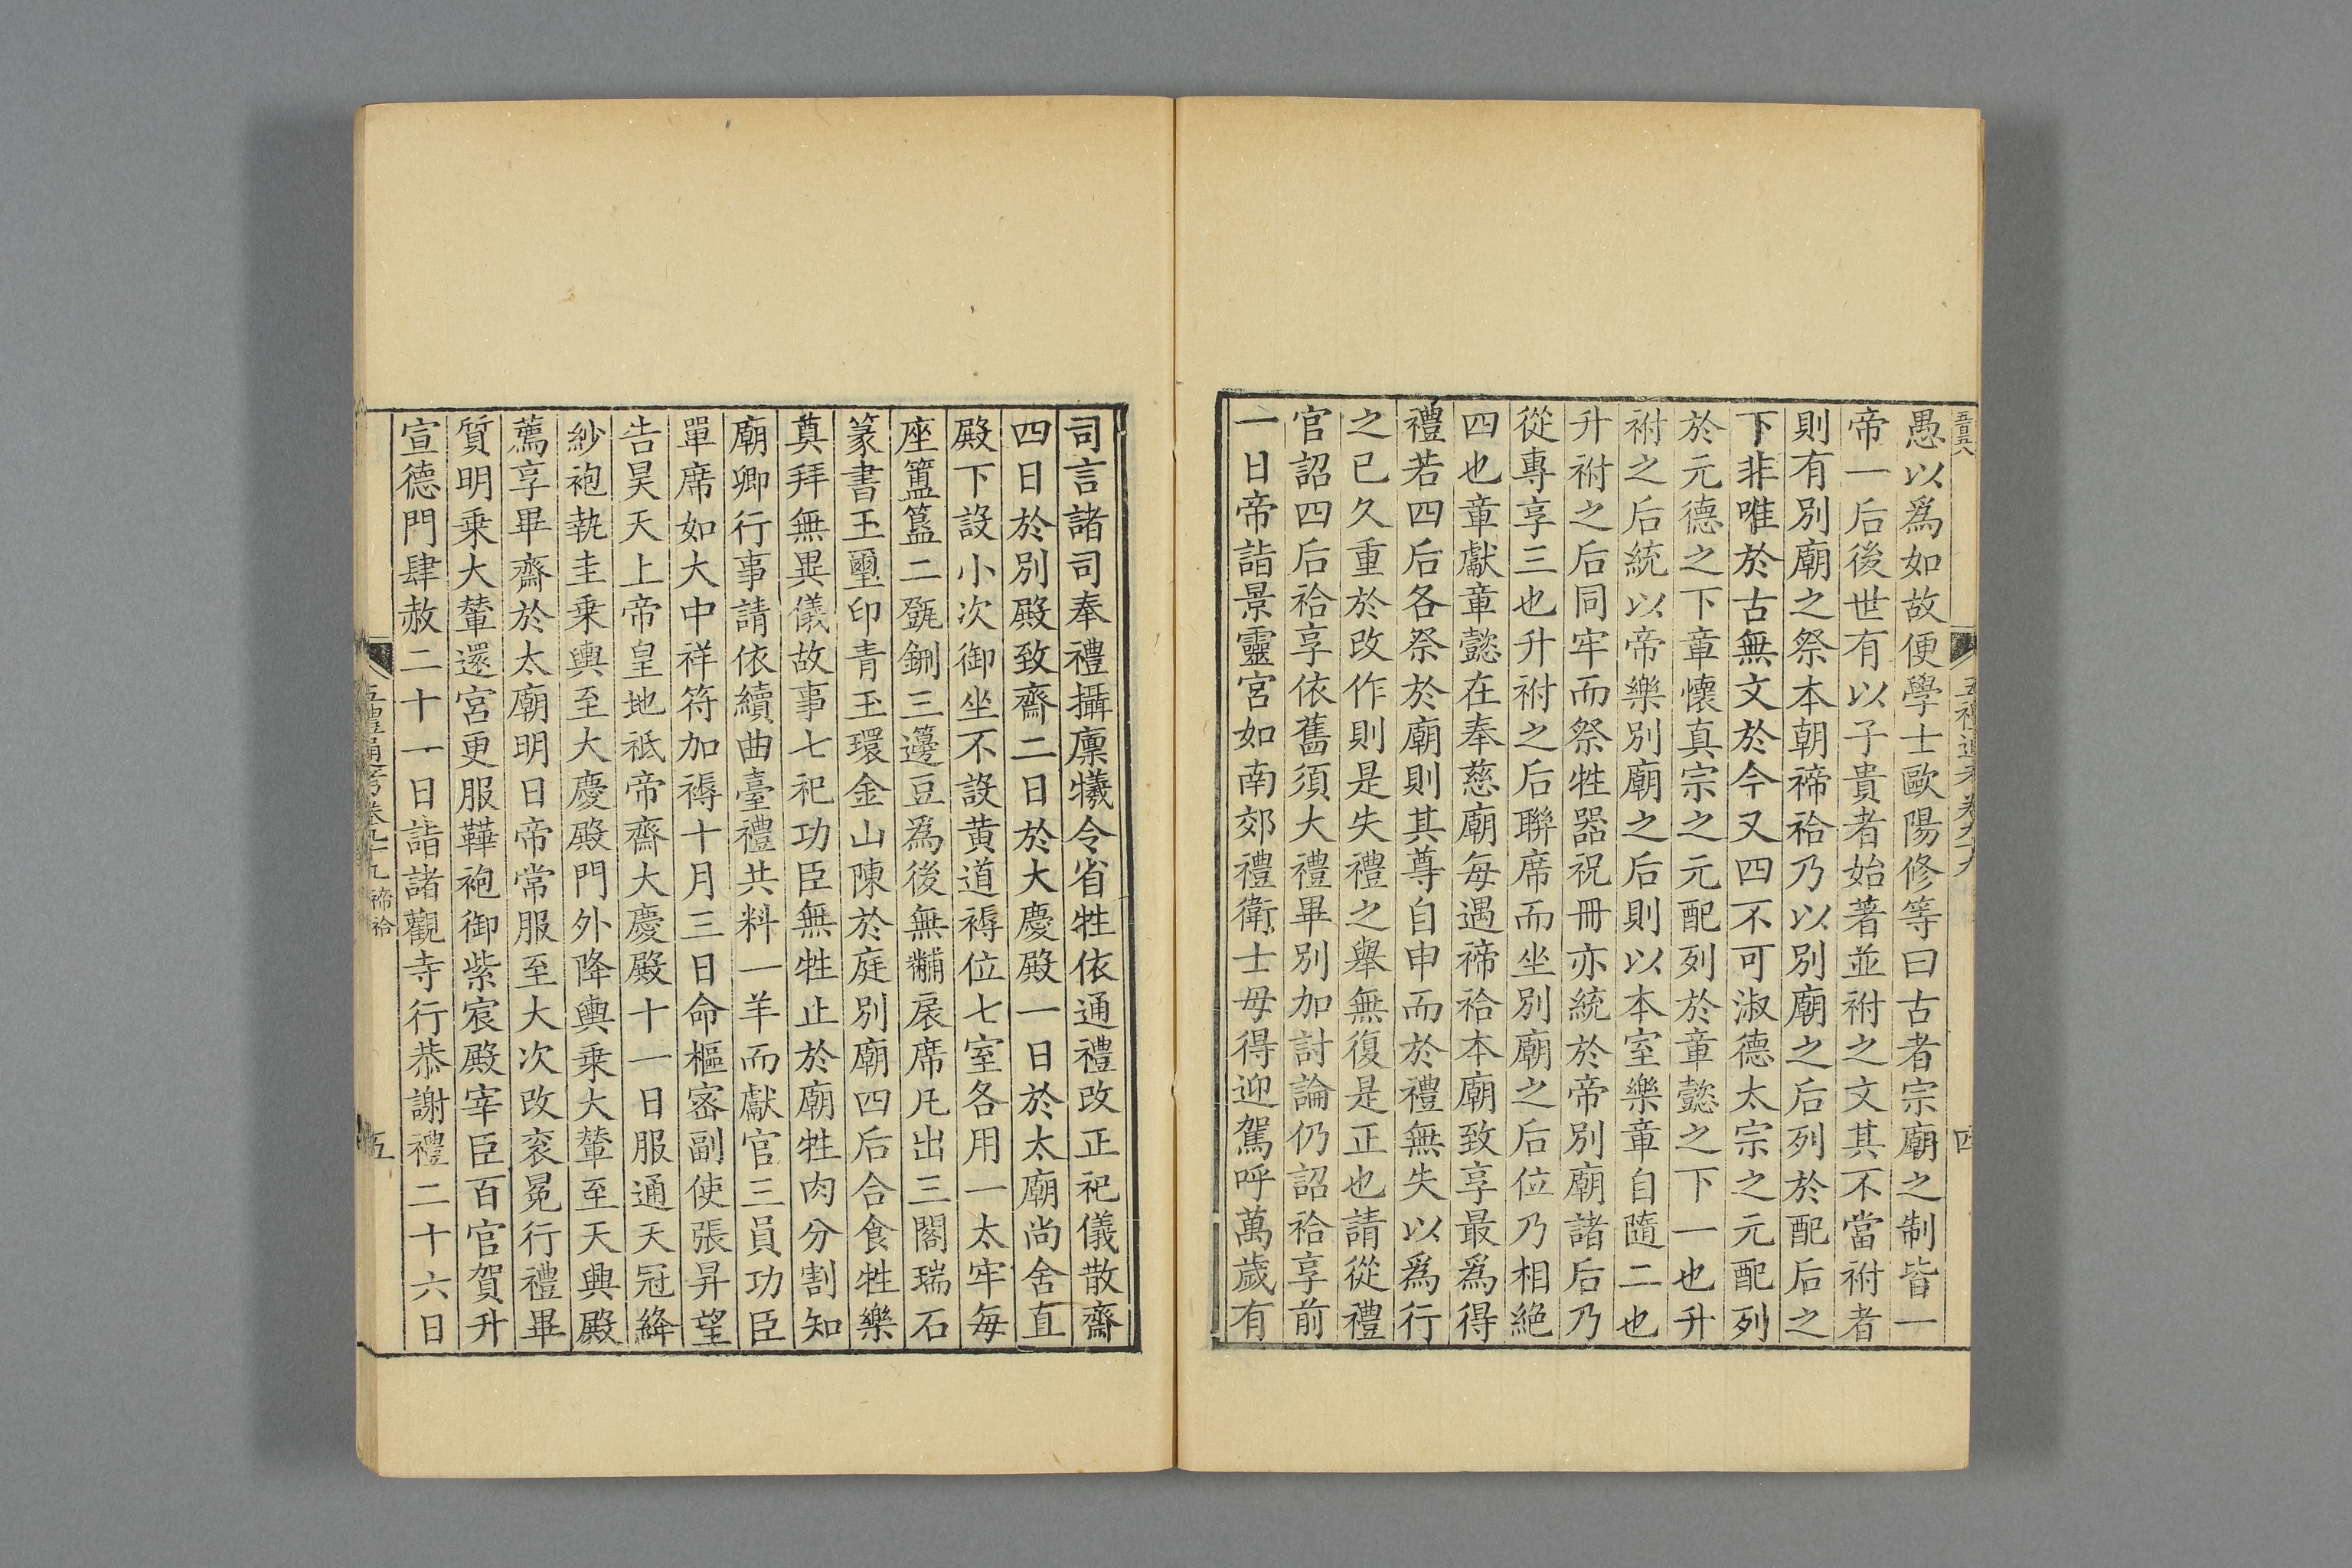 愚以爲如故便學士歐陽修等曰古者宗廟之制皆一
帝一后後世有以子貴者始著並祔之文其不當祔者
則有別廟之祭本朝禘祫乃以別廟之后列於配后之
下非唯於古無文於今又四不可淑德太宗之元配列
於元德之下章懷真宗之元配列於章懿之下一也升
祔之后統以帝樂別廟之后則以本室樂章自隨二也
升祔之后同牢而祭牲器祝冊亦統於帝別廟諸后乃
從專享三也升祔之后聯席而坐別廟之后位乃相絕
四也章獻章懿在奉慈廟每遇禘祫本廟致享最爲得
禮若四后各祭於廟則其尊自申而於禮無失以爲行
之已久重於改作則是失禮之舉無復是正也請從禮
官詔四后祫享依舊須大禮畢別加討論仍詔祫享前
一日帝詣景靈宮如南郊禮衛士毋得迎駕呼萬歲有
五禮通考卷九十九
四
司言諸司奉禮攝廩犧令省牲依通禮改正祀儀散齋
四日於別殿致齋二日於大慶殿一日於太廟尚舍直
殿下設小次御坐不設黄道褥位七室各用一太牢每
座簠簋二㽅鉶三籩豆爲後無黼扆席几出三閣瑞石
篆書玉璽印青玉環金山陳於庭別廟四后合食牲樂
奠拜無異儀故事七祀功臣無牲止於廟牲肉分割知
廟卿行事請依續曲臺禮共料一羊而獻官三員功臣
單席如大中祥符加褥十月三日命樞密副使張昇望
告昊天上帝皇地祗帝齋大慶殿十一日服通天冠絳
紗袍執圭乘輿至大慶殿門外降輿乘大輦至天興殿
薦享畢齋於太廟明日帝常服至大次改衮冕行禮畢
質明乘大輦還宮更服鞾袍御紫宸殿宰臣百官賀升
宣德門肆赦二十一日詣諸觀寺行恭謝禮二十六日
五禮通考卷九十九 禘祫
五